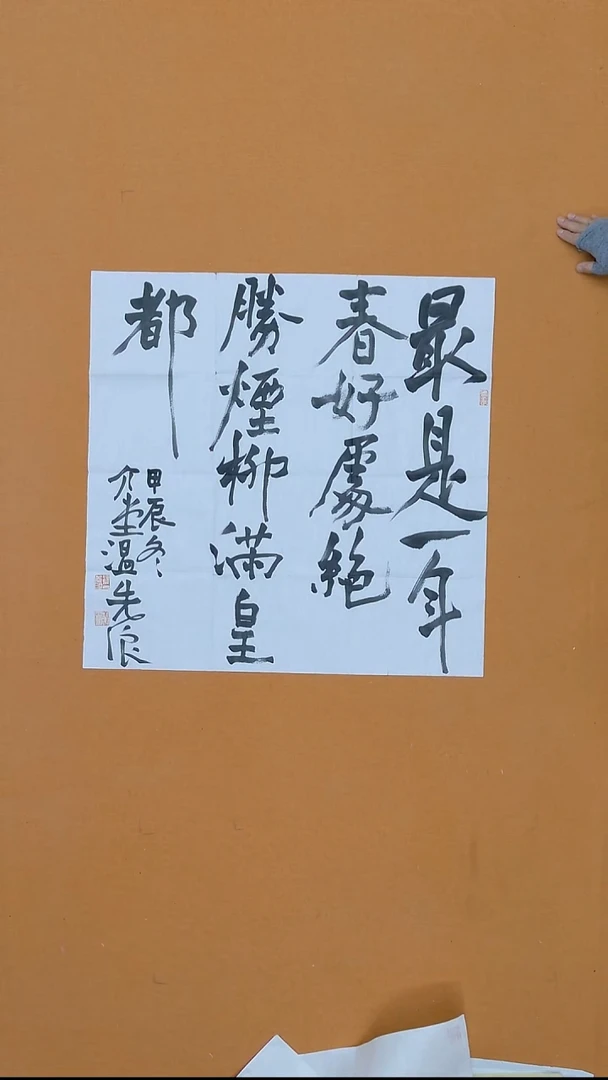 最是一年
春好處絕
勝煙柳滿皇
都
甲辰冬
介堂溫先浪